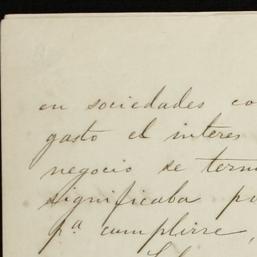 en sociedades co
gasto el interes
negocio se term
significaba p
pª cumplirre,